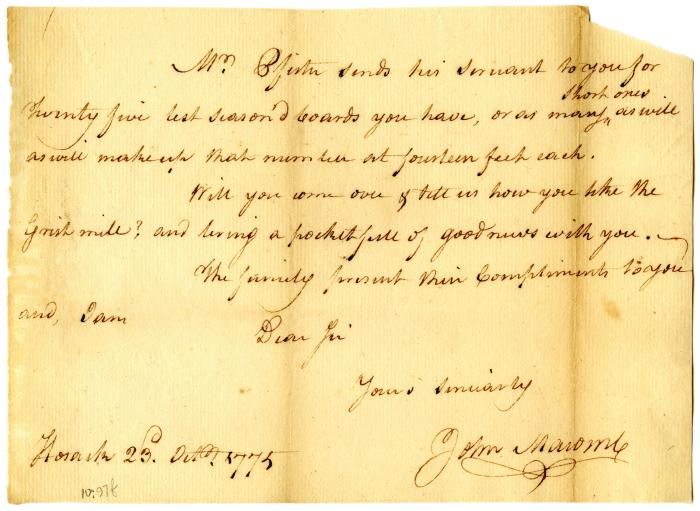 Mr. Pfister sends his servant to you for
short ones
Twenty five best season'd boards you have, or as many ^ as will
as will make up that number at fourteen feet each.
Will you come over & tell us how you like the
Grist mill? and bring a pocket full of good news with you.
The family present their Compliments to you
and, I am
Dear Sir
Yours sincearly
John Macomb
Hosack 23d. Octr. 1775
10:278